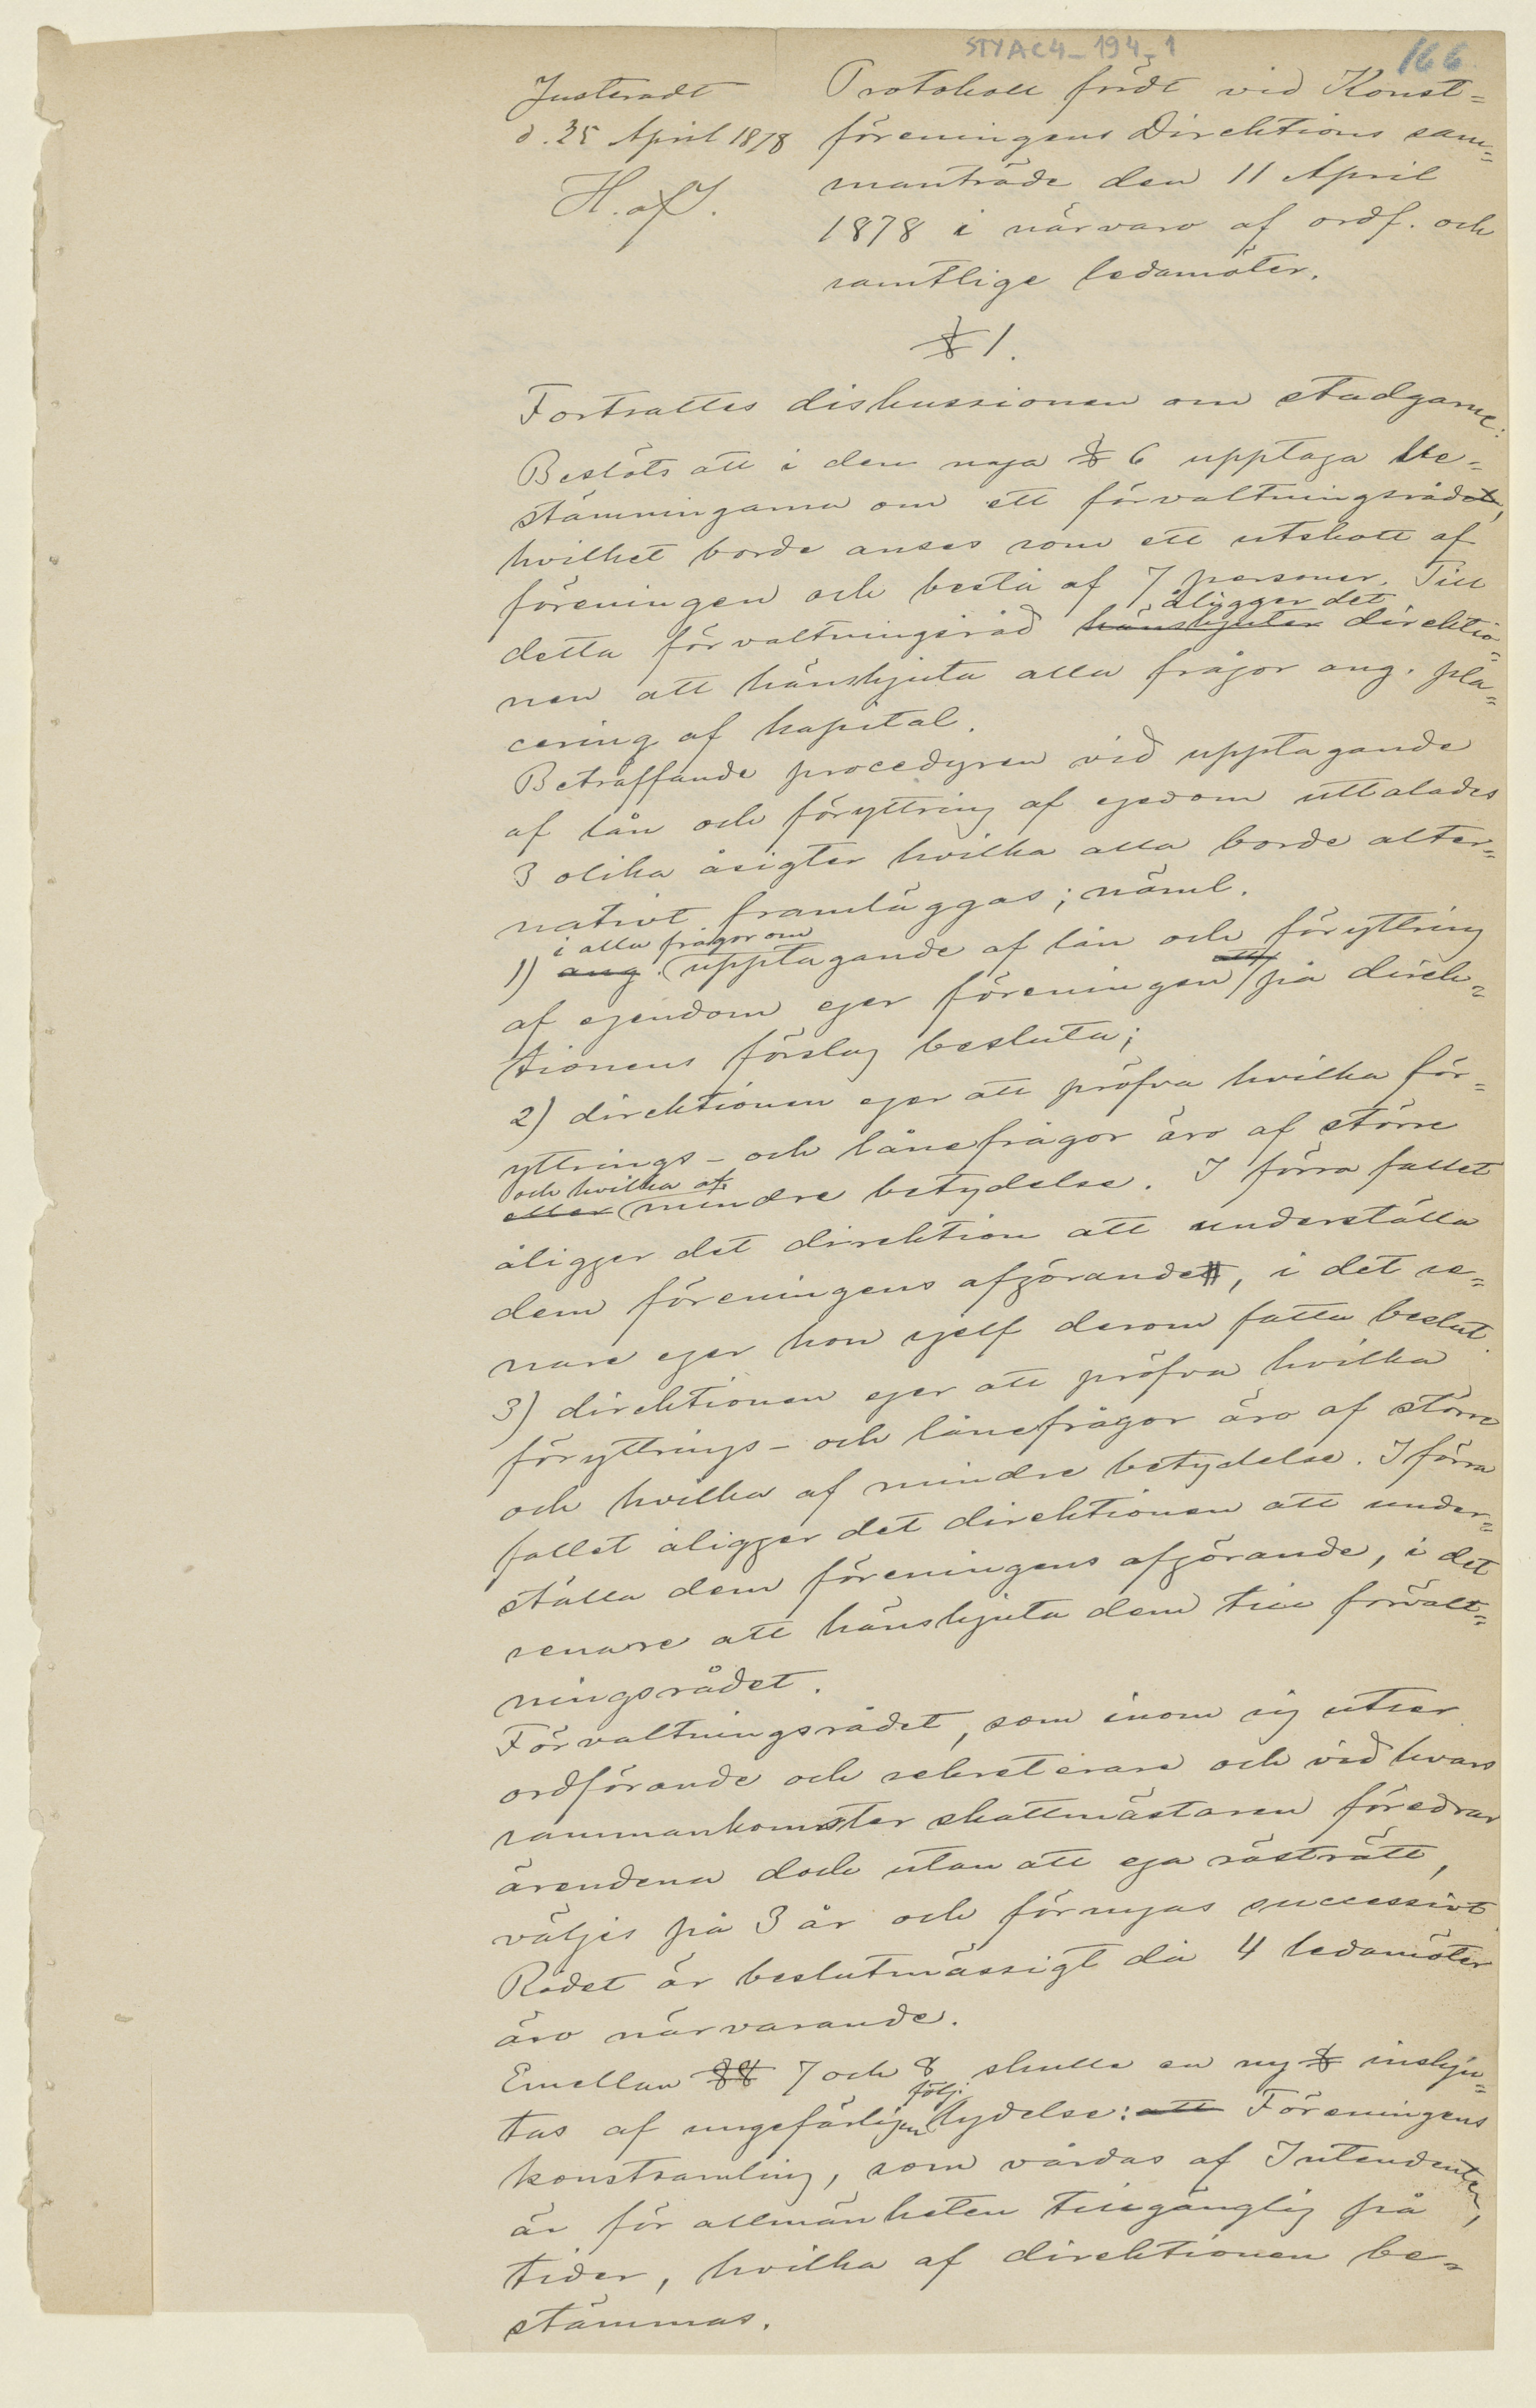 STYAC4_194_1
166
Justeradt
d. 25 April 1878
H. af S.
Protokoll fördt vid Konst=
föreningens Direktions sam=
manträde den 11 April
1878 i närvaro af ordf. och
samtlige ledamöter.
§ 1.
Fortsattes diskussionen om stadgarne:
Beslöts att i den nya § 6 upptaga be=
stämningarna om ett förvaltningsråd,
hvilket borde anses som ett utskott af
föreningen och bestå af 7 personer. Till
åligger det
detta förvaltningsråd hänskjuter direktio=
nen att hänskjuta alla frågor ang. pla=
cering af kapital.
Beträffande proceduren vid upptagande
af lån och föryttring af egedom uttalades
3 olika åsigter hvilka alla borde alter=
nativt framläggas; näml.
i alla frågor om
1) ang. upptagande af lån och föryttring
af egendom eger föreningen på direk=
tionens förslag besluta;
2) direktionen eger att pröfva hvilka för=
yttrings- och lånefrågor äro af större
och hvilka af
eller mindre betydelse. I förra fallet
åligger det direktion att underställa
dem föreningens afgörande, i det se=
nare eger hon sjelf derom fatta beslut.
3) direktionen eger att pröfva hvilka
föryttrings- och lånefrågor äro af större
och hvilka af mindre betydelse. I förra
fallet åligger det direktionen att under=
ställa dem föreningens afgörande, i det
senare att hänskjuta dem till förvalt=
ningsrådet.
Förvaltningsrådet, som inom sig utser
ordförande och sekreterare och vid hvars
sammankomster skattmästaren föredrar
ärendena dock utan att ega rösträtt,
väljes på 3 år och förnyas successivt.
Rådet är beslutmässigt då 4 ledamöter
äro närvarande.
Emellan §§ 7 och 8 skulle en ny § inskju=
följ:
tas af ungefärligen lydelse: att Föreningens
konstsamling, som vårdas af Intendenten,
är för allmänheten tillgänglig på
tider, hvilka af direktionen be=
stämmas.